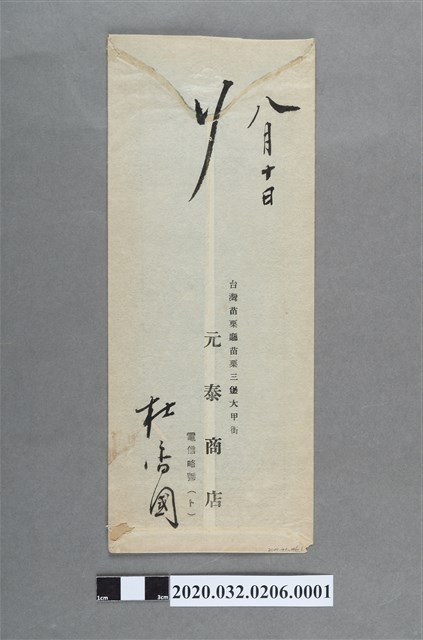 八月十日
台灣苗栗廳苗栗三堡大甲街
元泰商店
電信略號(ト)
杜香國
1cm
3cm
2020.032.0206.0001